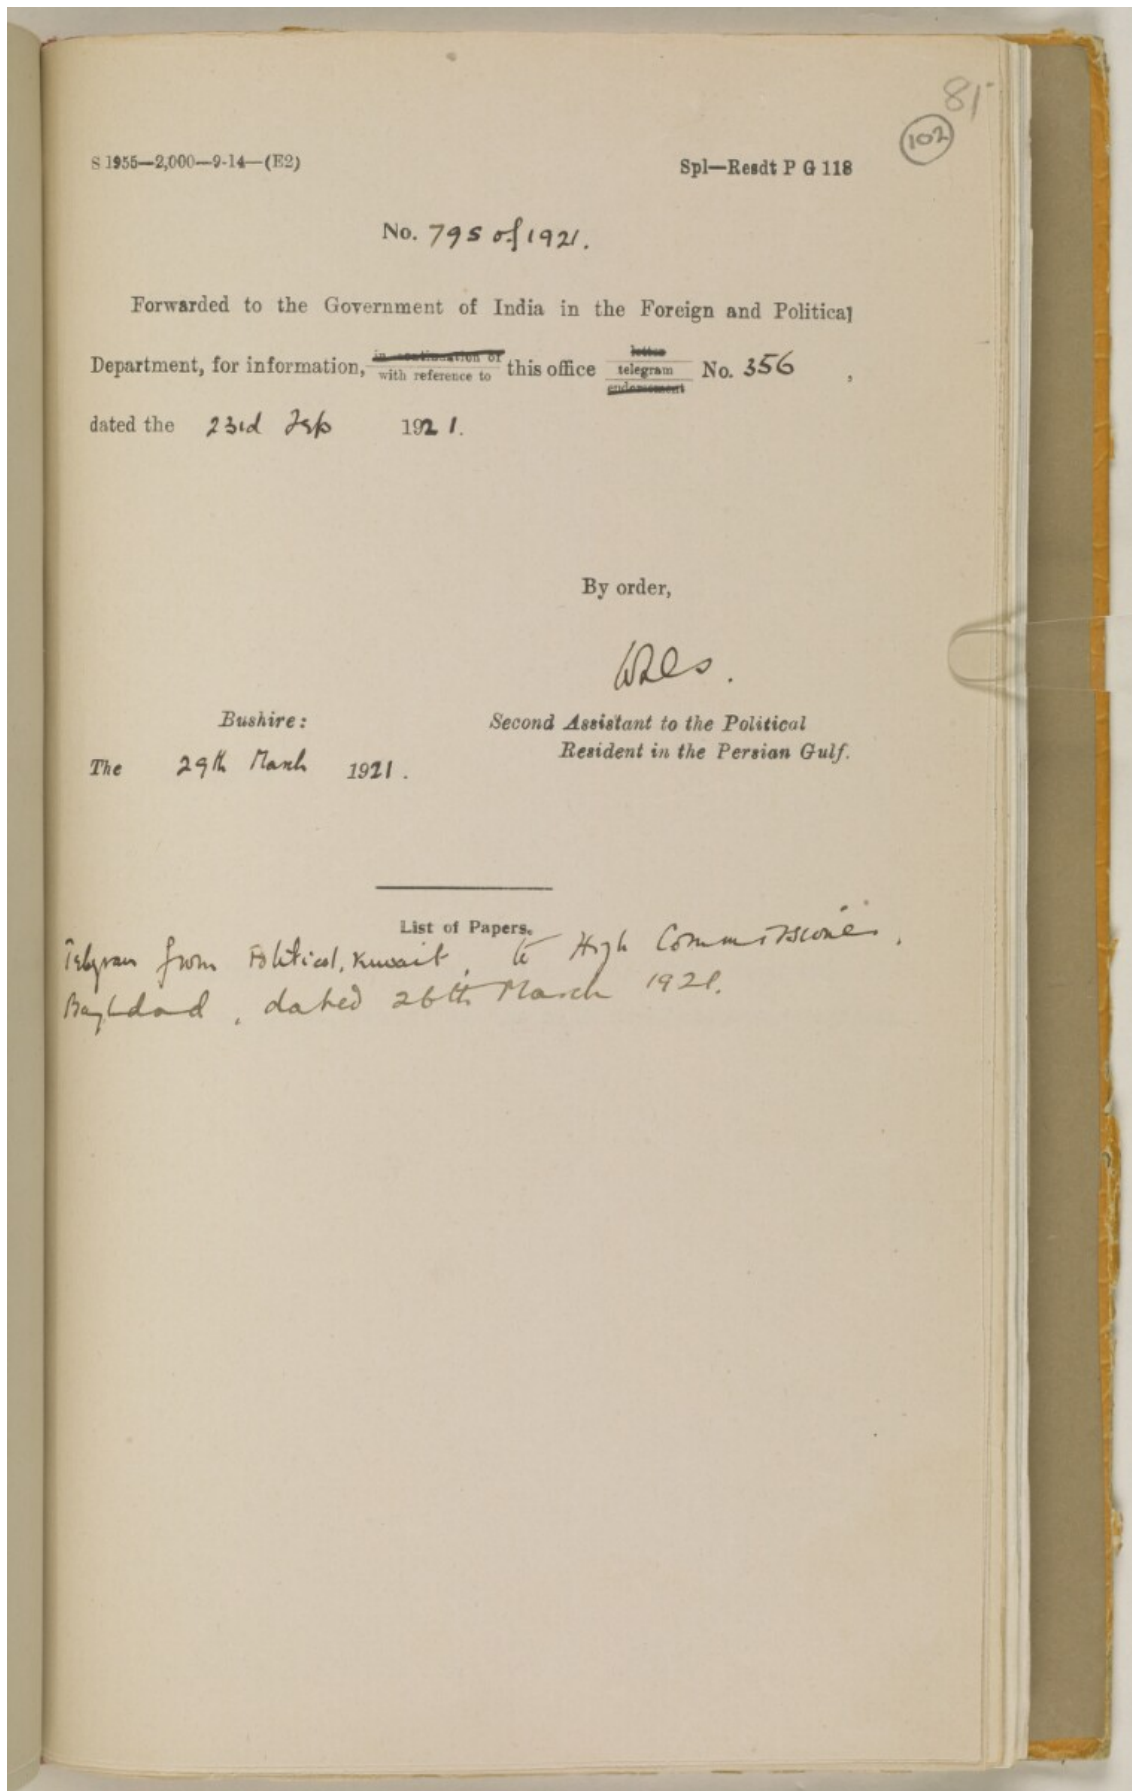 81
102
S 1955—2,000—9-14—(E2)
Spl—Resdt P G 118
No. 795 of 1921.
Forwarded to the Government of India in the Foreign and Political
Department, for information, in continuation of with reference to this office letter telegram endorsement No. 356 ,
dated the 23rd Feb 1921.
By order,
Bushire:
Second Assistant to the Political
Resident in the Persian Gulf.
The 29th March 1921.
List of Papers.
Telegram from Political, Kuwait, to High Commissioner,
Baghdad, dated 26th March 1921.